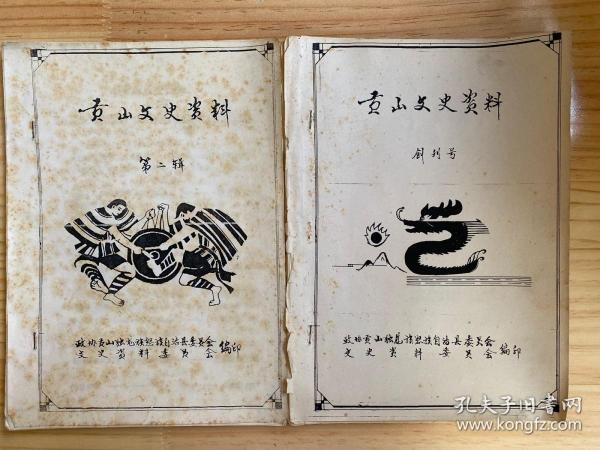 贡山文史资料
第二辑
政协贡山独龙族怒族自治县委员会
文史资料委员会编印
贡山文史资料
创刊号
政协贡山独龙族怒族自治县委员会
文史资料委员会编印
孔夫子旧书网
www.kongfz.com